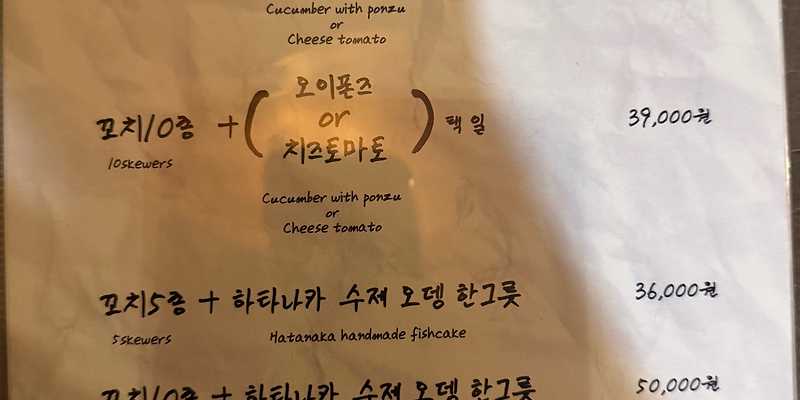 Cucumber with ponzu
or
Cheese tomato
꼬치10종 + ( 오이폰즈
or
치즈토마토 ) 택일 39,000원
10skewers
Cucumber with ponzu
or
Cheese tomato
꼬치5종 + 하타나카 수제 오뎅 한그릇 36,000원
5skewers Hatanaka handmade fishcake
꼬치10종 + 하타나카 수제 오뎅 한그릇 50,000원